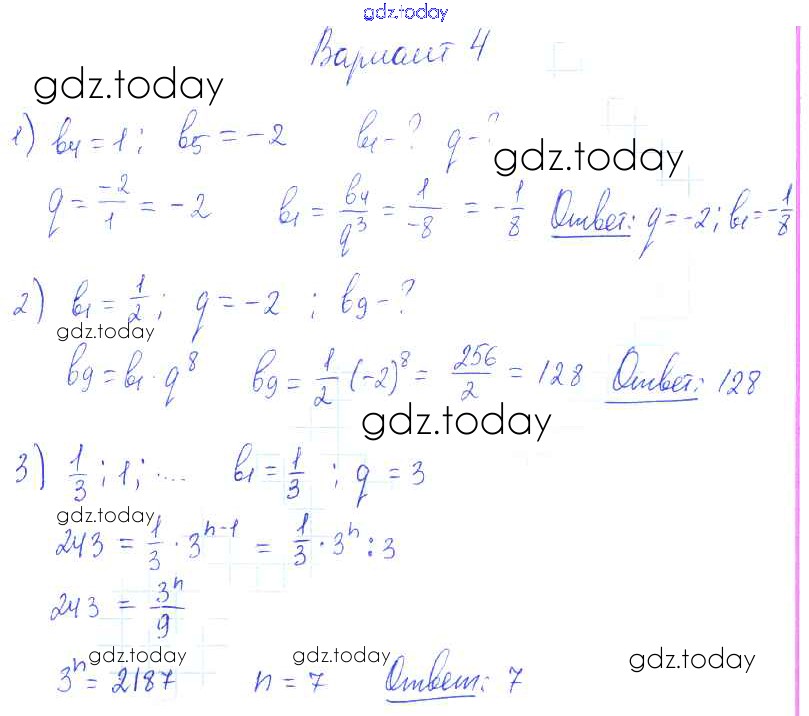 gdz.today
Вариант 4
gdz.today
1) b₄ = 1; b₅ = -2 b₁ - ? q - ?
gdz.today
q = -2/1 = -2 b₁ = b₄/q³ = 1/-8 = -1/8 Ответ: q = -2; b₁ = -1/8
2) b₁ = 1/2; q = -2 ; b₉ - ?
gdz.today
b₉ = b₁ · q⁸ b₉ = 1/2 (-2)⁸ = 256/2 = 128 Ответ: 128
gdz.today
3) 1/3; 1; ... b₁ = 1/3 ; q = 3
gdz.today
243 = 1/3 · 3ⁿ⁻¹ = 1/3 · 3ⁿ : 3
243 = 3ⁿ/9
gdz.today gdz.today gdz.today
3ⁿ = 2187 n = 7 Ответ: 7